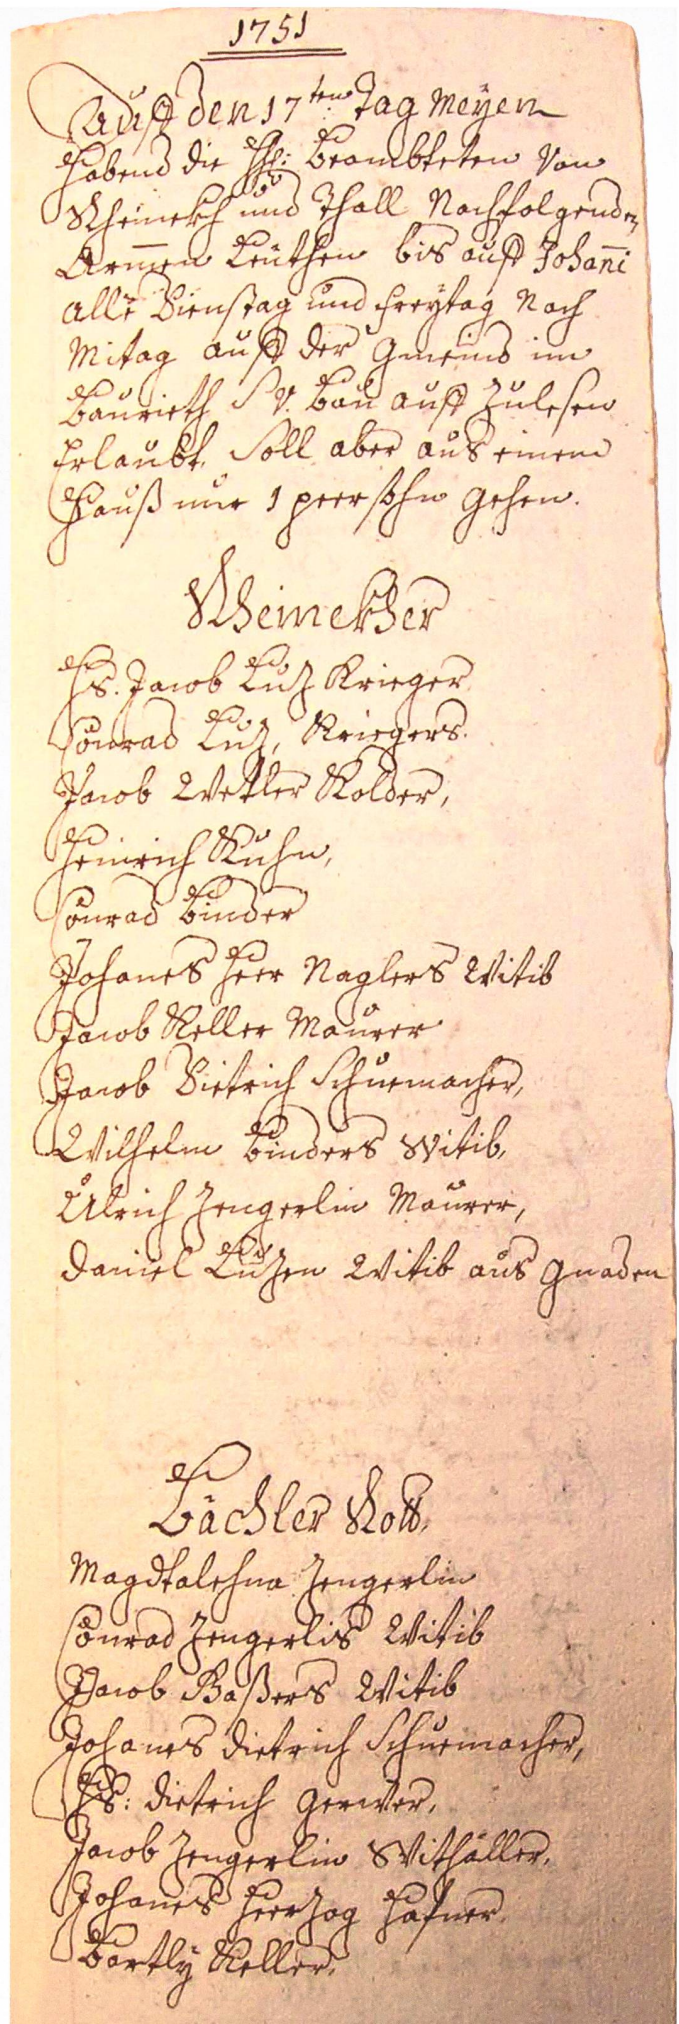 1751
Auff den 17ten Tag Meÿen
Habend die Hh: Beambteten Von
Rheinekh und Thall Nachfolgenden
Armen Leüthen bis auff Johañi
alle Dienstag und Freÿtag Nach
Mitag auff der Gmeind im
Baurieth S.V. Bau auff Zulesen
Erlaubt. Soll aber aus einem
Hauß nur 1 peerßohn gehen.
Rheinekher
Hs. Jacob Lutz Krieger
Conrad Lutz, Kriegers.
Jacob Wetler Kolder,
Heinrich Kuhn,
Conrad Binder
Johanes Heer Naglers Witib
Jacob Keller Maurer
Jacob Dietrich Schuemacher,
Wilhelm Binders Witib,
Ulrich Zengerlin Maurer,
Daniel Lutzen Witib aus gnaden
Bächler Rott,
Magdtalehna Zengerlin
Conrad Zengerlis Witib
Jacob Baßers Witib
Johanes Dietrich Schuemacher,
Hs: Dietrich Gerwer,
Jacob Zengerlin Withäller,
Johanes Heerzog Hafner,
Bartlÿ Keller,